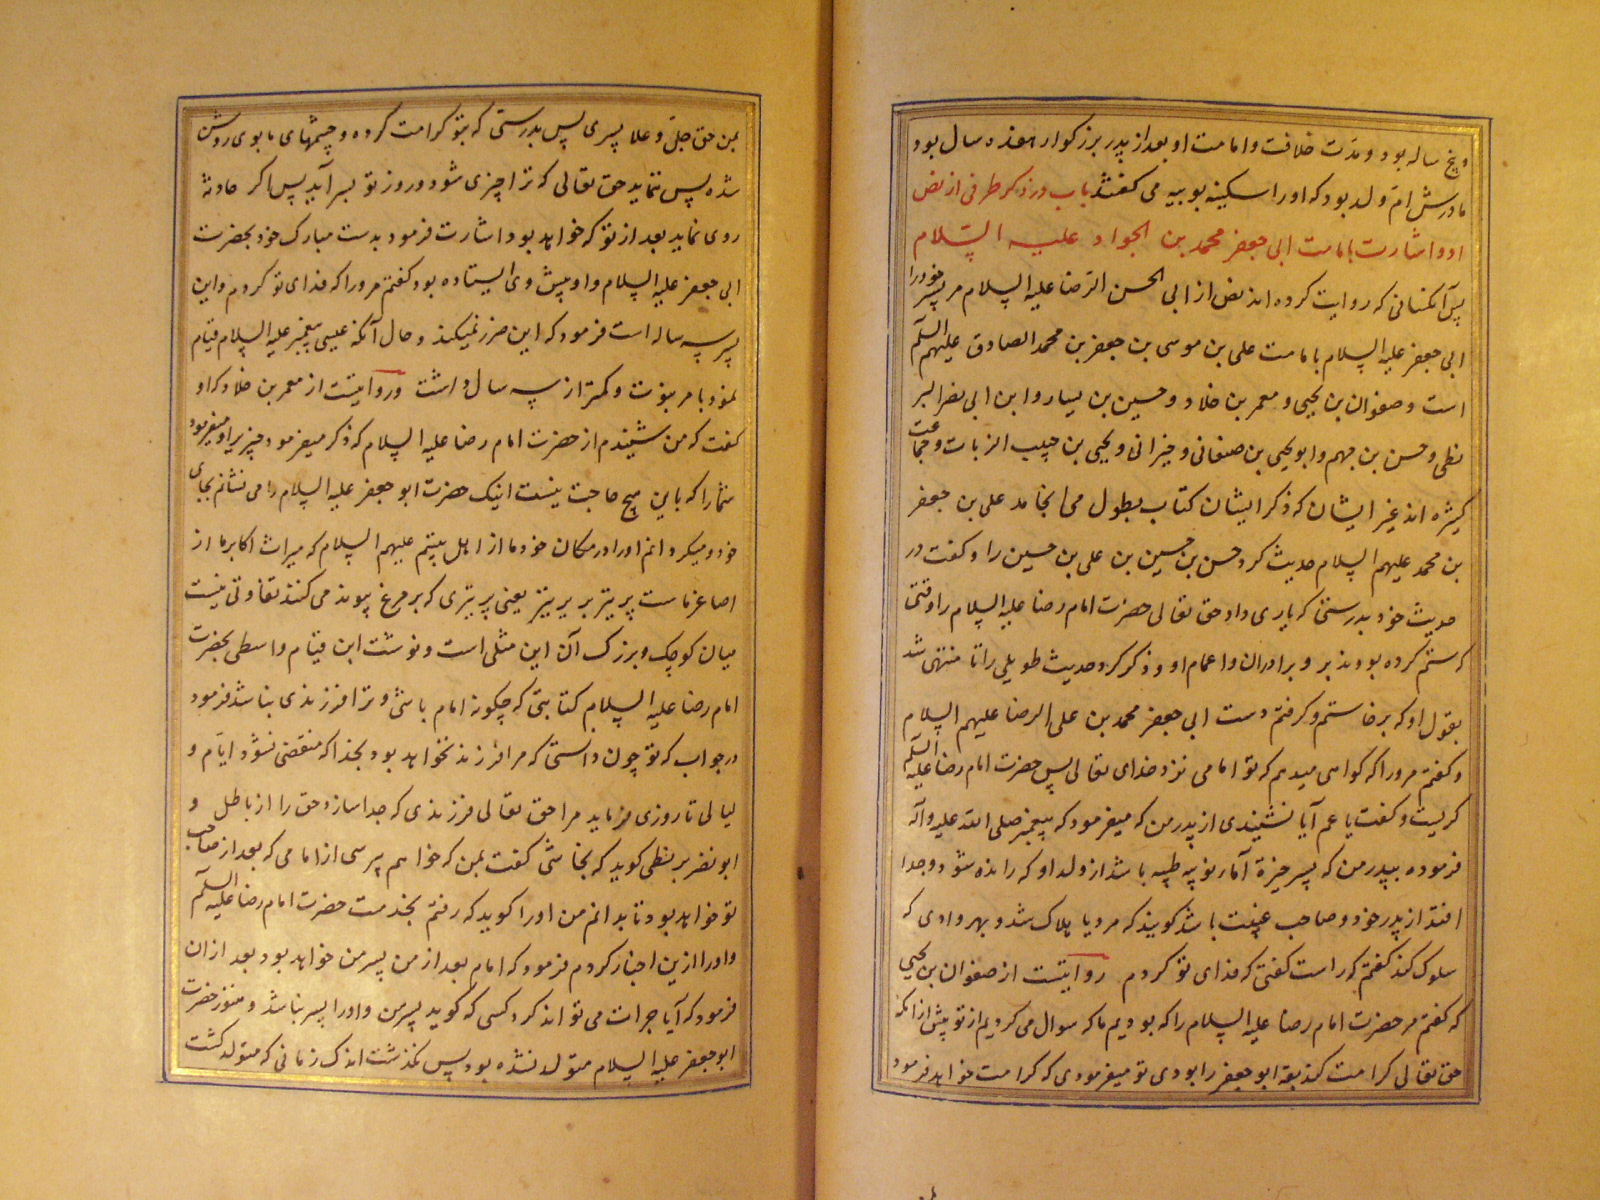 و پنج ساله بود و مدت خلافت و امامت او بعد از پدر بزرگوار هفده سال بود
مادرش ام ولد بود که او را سکینه نوبیه می کفتند باب در ذکر طرفی از نص
او و اشارت بامامت ابی جعفر محمد بن الجواد علیه السّلام
پس آنکسانی که روایت کرده اند نص از ابی الحسن الرّضا علیه السلام مر پسر خود را
ابی جعفر علیه السلام بامامت علی بن موسی بن جعفر بن محمد الصادق علیهم السلم
است و صفوان بن یحیی و معمر بن خلاد و حسین بن یسار و ابن ابی نصر البز
نطی و حسن بن جهم و ابو یحیی بن صنعانی و خیزانی و یحیی بن حبیب الزیات و جماعت
کثیره اند غیر ایشان که ذکر ایشان کتاب بطول می انجامد علی بن جعفر
بن محمد علیهم السلام حدیث کرد حسن بن حسین بن علی بن حسین را و کفت در
حدیث خود بدرستی که یاری داد حق تعالی حضرت امام رضا علیه السلام را وقتی
که ستم کرده بودند بر و برادران و اعمام او و ذکر کرد حدیث طویلی را تا منتهی شد
بقول او که برخاستم و کرفتم دست ابی جعفر محمد بن علی الرضا علیهم السلام
و کفتم مرو را که کواهی میدهم که تو امامی نزد خدای تعالی پس حضرت امام رضا علیه السلم
کریست و کفت یا عم آیا نشنیدی از پدر من که میفرمود که پیغمبر صلی الله علیه و آله
فرموده بپدر من که پسر خیرة آمار نوبیه طیبه باشد از ولد او که رانده شود و جدا
افتد از پدر خود و صاحب غیبت باشد کویند که مرد یا هلاک شد و بهر وادی که
سلوک کند کفتم که راست کفتی که فدای تو کردم روایتست از صفوان بن یحیی
که کفتم مر حضرت امام رضا علیه السلام را که بودیم ما که سوال می کردیم از تو پیش از انکه
حق تعالی کرامت کند بتو ابو جعفر را بودی تو میفرمودی که کرامت خواهد فرمود
بمن حق جلّ و علا پسری پس بدرستی که بتو کرامت کرده و چشمهای ما بوی روشن
شده پس ننماید حق تعالی که ترا چیزی شود و روز تو بسر آید پس اکر حادثهٔ
روی نماید بعد از تو که خواهد بود اشارت فرمود بدست مبارک خود بحضرت
ابی جعفر علیه السلام و او پیش وی ایستاده بود کفتم مرورا که فدای تو کردم و این
پسر سه ساله است فرمود که این ضرر نمیکند و حال آنکه عیسی پیغمبر علیه السلام قیام
نمود بامر نبوت و کمتر از سه سال داشت و روایتست از معمر بن خلاد که او
کفت که من شنیدم از حضرت امام رضا علیه السلام که ذکر میفرمود چیزی را و میفرمود
شما را که باین هیچ حاجت نیست اینک حضرت ابو جعفر علیه السلام را می نشانم بجای
خود و میکردانم او را در مکان خود ما از اهل بیتیم علیهم السلام که میراث اکابر ما از
اصاغر ماست پر بتیر بر پر بتیر یعنی پر بتیری که بر مرغ پیوند می کنند تفاوتی نیست
میان کوچک و بزرک آن این مثلی است و نوشت ابن قیام واسطی بحضرت
امام رضا علیه السلام کتابتی که چکونه امام باشی و ترا فرزندی نباشد فرمود
در جواب که تو چون دانستی که مرا فرزند نخواهد بود بخدا که منقضی نشود ایّام و
لیالی تا روزی فرماید مرا حق تعالی فرزندی که جدا سازد حق را از باطل و
ابو نصر بزنطی کوید که نجاشی کفت بمن که خواهم پرسی از امامی که بعد از صاحب
تو خواهد بود تا بدانم من او را کوید که رفتم بخدمت حضرت امام رضا علیه السلم
و او را ازین اخبار کردم فرمود که امام بعد از من پسر من خواهد بود بعد از ان
فرمود که آیا جرات می تواند کرد کسی که کوید پسر من و او را پسر نباشد و هنوز حضرت
ابو جعفر علیه السلام متولد نشده بود پس نکذشت اندک زمانی که متولد کشت